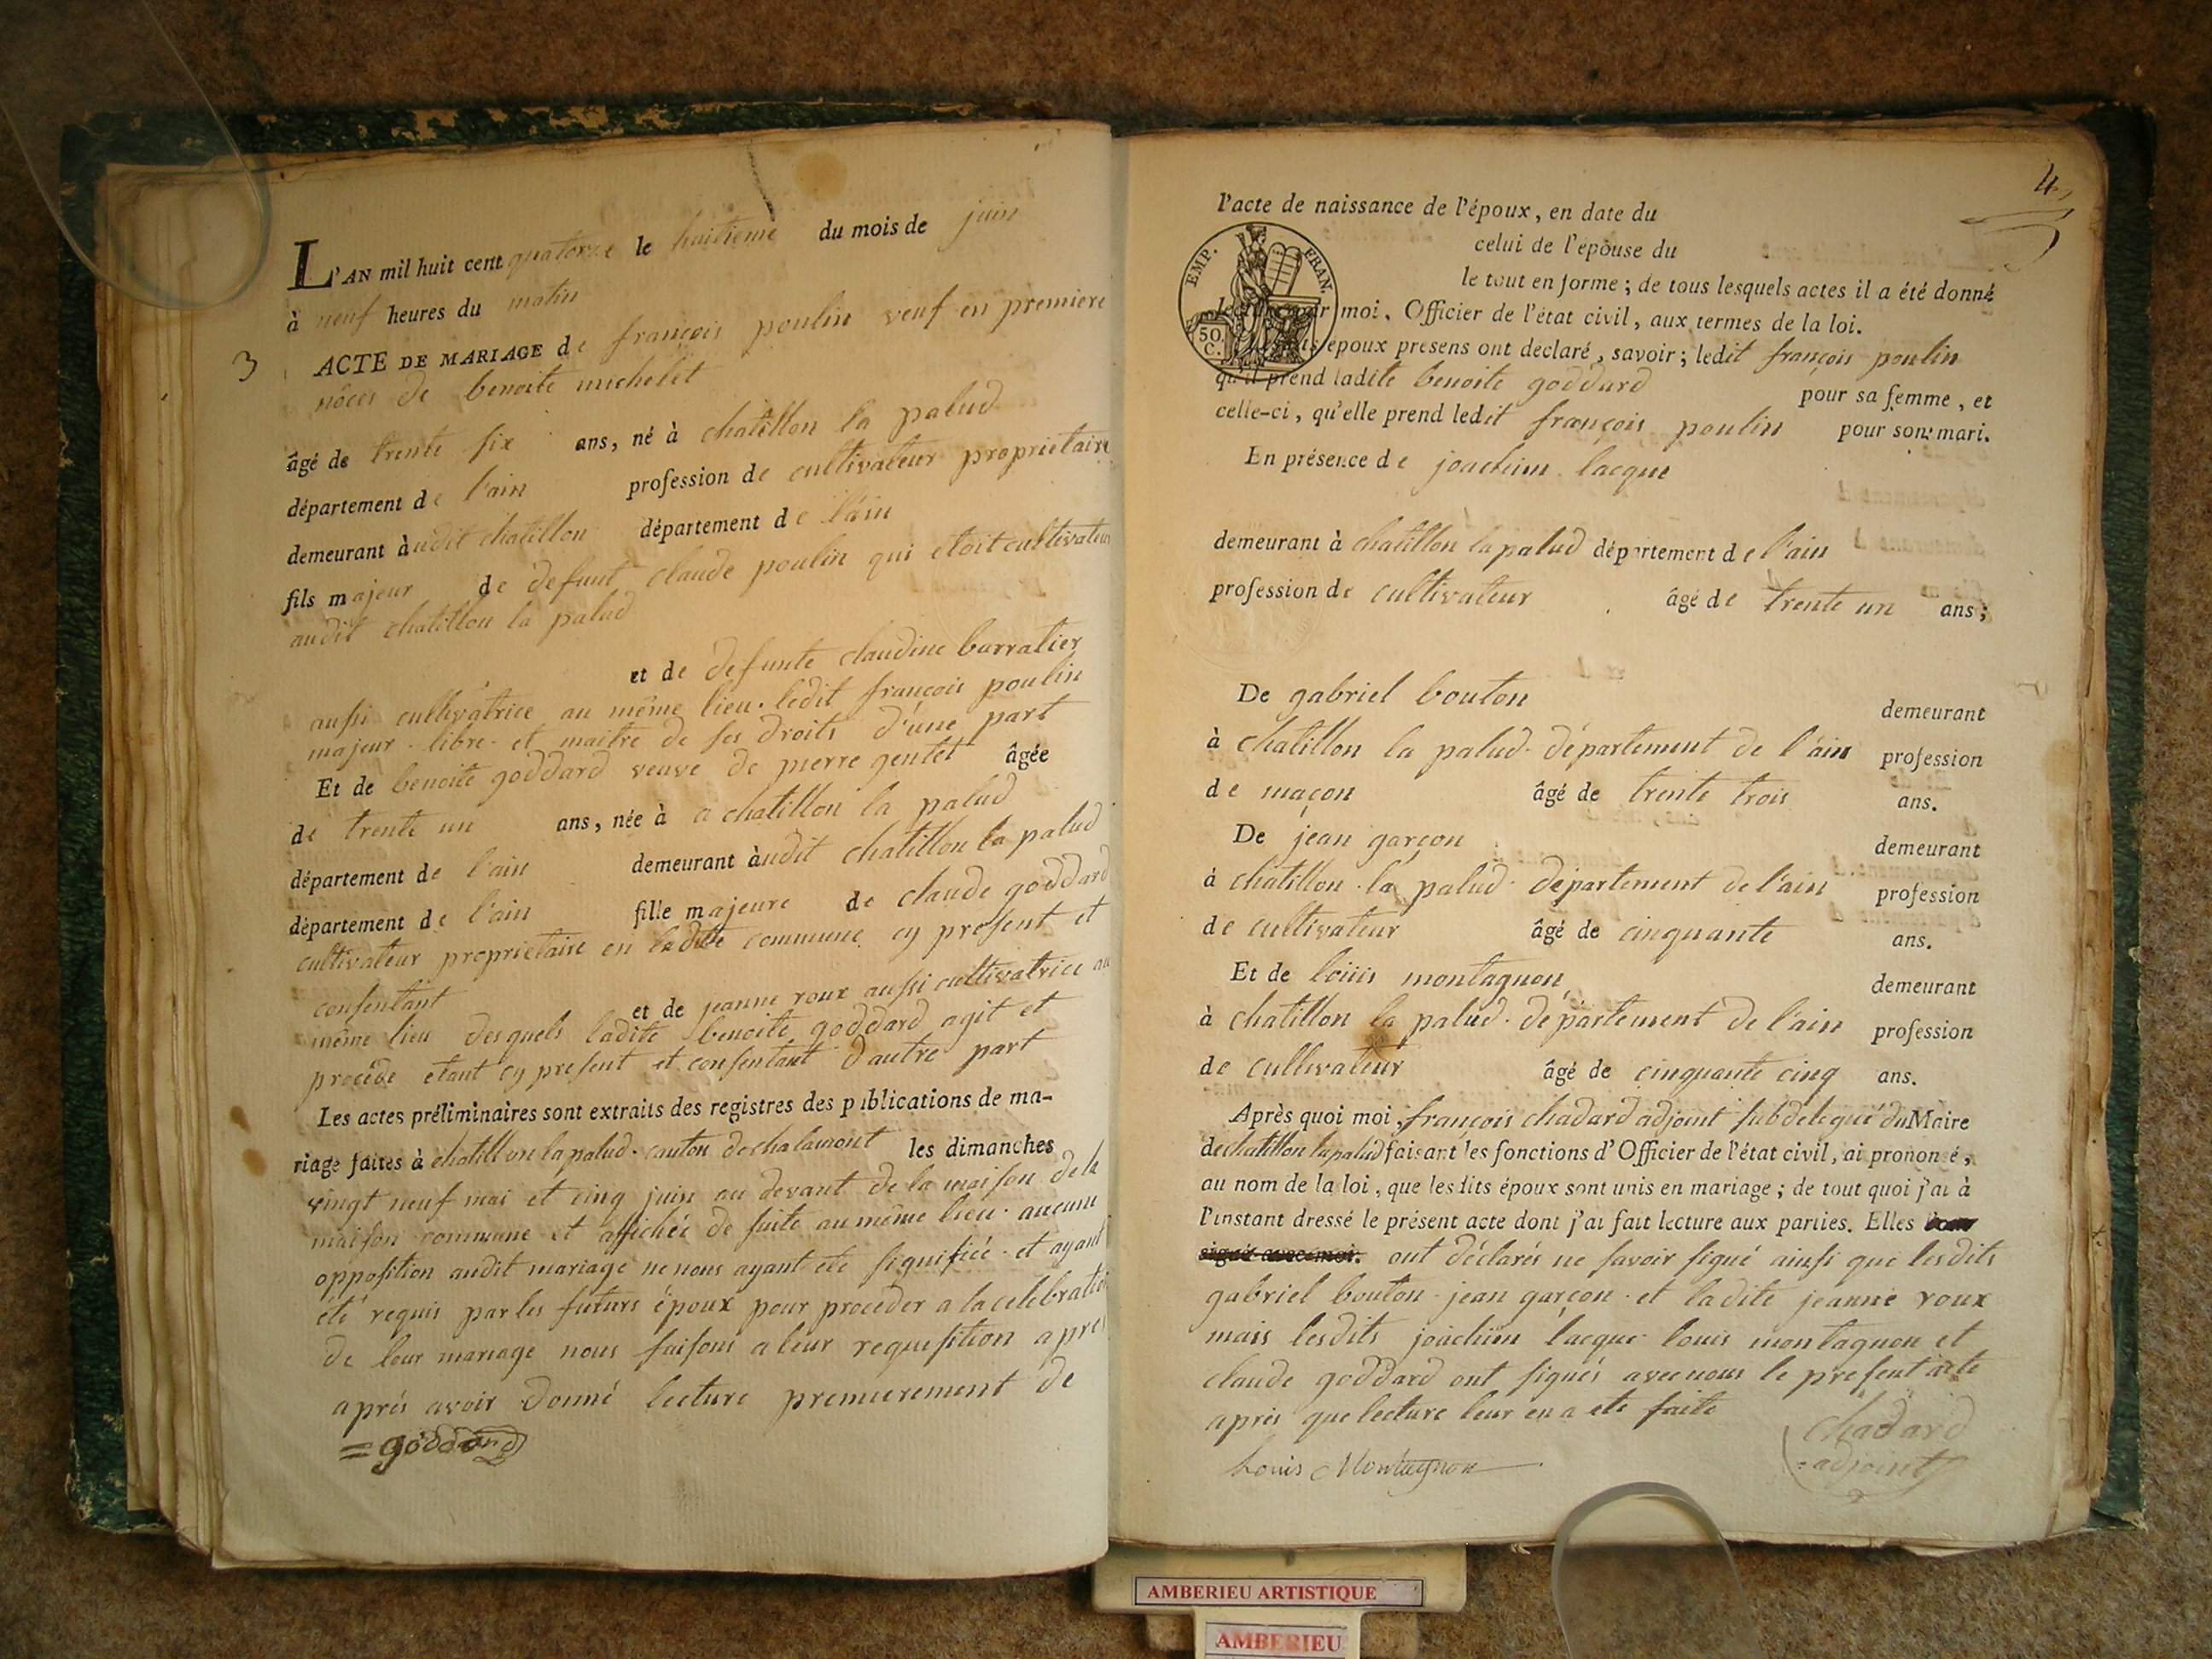 L'AN mil huit cent quatorze le huitieme du mois de juin
à neuf heures du matin
3 ACTE DE MARIAGE de françois poulin veuf en premiere
nôces de benoite michelet
âgé de trente six ans, né à chatillon la palud
département de l'ain profession de cultivateur proprietaire
demeurant àudit chatillon département de l'ain
fils majeur de defunt claude poulin qui etoit cultivateur
audit chatillon la palud
et de defunte claudine barratier
aussi cultivatrice au même lieu. ledit françois poulin
majeur. libre. et maitre de ses droits d'une part
Et de benoite goddard veuve de pierre gentet âgée
de trente un ans, née à a chatillon la palud
département de l'ain demeurant àudit chatillon la palud
département de l'ain fille majeure de claude goddard
cultivateur proprietaire en ladite commune cy present et
consentant et de jeanne roux aussi cultivatrice au
même lieu desquels ladite benoite goddard agit et
procède etant cy present et consentant d'autre part
Les actes préliminaires sont extraits des registres des publications de ma-
riage faites à chatillon la palud. canton de chalamont les dimanches
vingt neuf mai et cinq juin au devant de la maison de la
maison commune et affichée de suite au même lieu. aucune
opposition audit mariage ne nous ayant été signifiée. et ayant
été requis par les futurs époux pour proceder a la celebration
de leur mariage nous faisons a leur requesition apres
aprés avoir donné lecture premierement de
= goddard
4
l'acte de naissance de l'époux, en date du
celui de l'épouse du
EMP. FRAN.
50. C.
le tout en forme; de tous lesquels actes il a été donné
lecture par moi, Officier de l'état civil, aux termes de la loi.
époux presens ont declaré, savoir; ledit françois poulin
qu'il prend ladite benoite goddard pour sa femme, et
celle-ci, qu'elle prend ledit françois poulin pour son mari.
En présence de joachim lacque
demeurant à chatillon la palud département de l'ain
profession de cultivateur âgé de trente un ans;
De gabriel bouton demeurant
à chatillon la palud. département de l'ain profession
de maçon âgé de trente trois ans.
De jean garçon demeurant
à chatillon. la palud. département de l'ain profession
de cultivateur âgé de cinquante ans.
Et de louis montagnon demeurant
à chatillon la palud. département de l'ain profession
de cultivateur âgé de cinquante cinq ans.
Après quoi moi, françois chadard adjoint subdelegué du Maire
de chatillon la palud faisant les fonctions d'Officier de l'état civil, ai prononcé,
au nom de la loi, que lesdits époux sont unis en mariage; de tout quoi j'ai à
l'instant dressé le présent acte dont j'ai fait lecture aux parties. Elles
signé avec moi. ont déclarés ne savoir signé ainsi que lesdits
gabriel bouton. jean garçon. et ladite jeanne roux
mais lesdits joachim lacque louis montagnon et
claude goddard ont signés avec nous le present acte
après que lecture leur en a ete faite
Louis Montagnon chadard
adjoint
AMBERIEU ARTISTIQUE
AMBERIEU